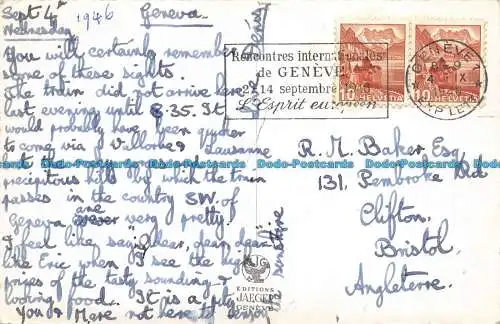 Sept 4th 1946 Geneva.
Wednesday
You will certainly remember
some of these sights.
The train did not arrive here
last evening until 8.35. It
would probably have been quicker
to come via Vallorbe & Lausanne
precipitous hills by which the train
passes in the country SW. of
Geneva are very pretty.
I feel like saying "dear, dear, dear"
like Eric when I see the high
prices of the tasty sounding &
looking food. It is a pity
you & Mere not here to enjoy
the sunshine
Rencontres internationales
de GENÈVE
2-14 septembre
L'Esprit européen
GENÈVE
HELVETIA
10
HELVETIA
10
R. M. Baker Esq,
131, Pembroke Rd
Clifton,
Bristol,
Angleterre.
EDITIONS
JAEGER
GENÈVE
Dodo-Postcards